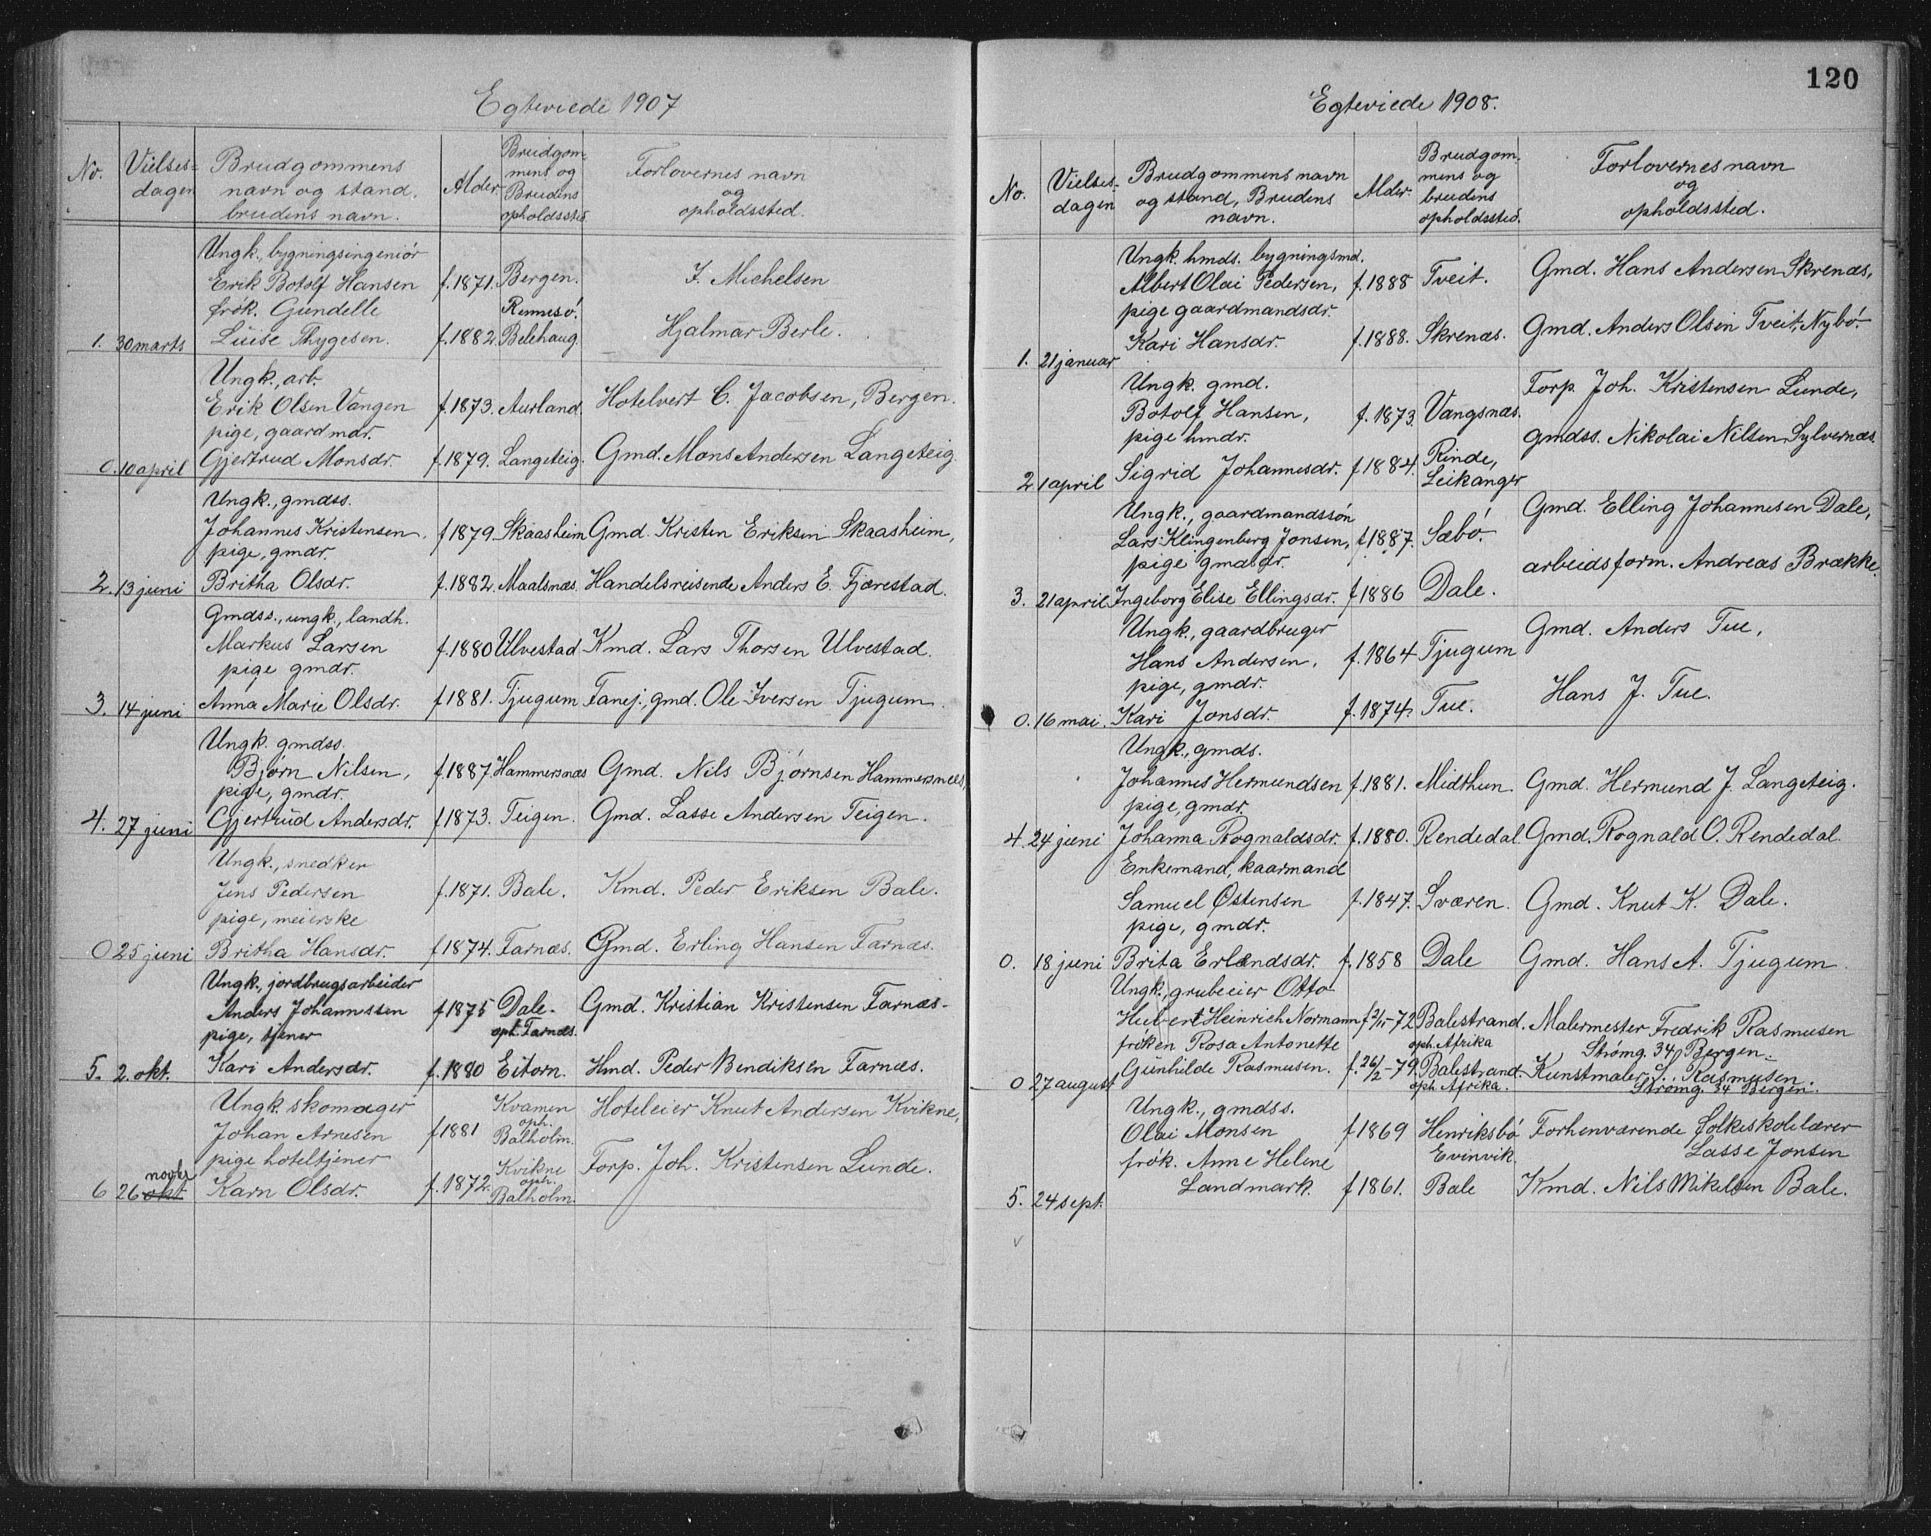 Egteviede 1907
No.
Vielses-
dagen
Brudgommens
navn og stand,
brudens navn.
Alder
Brudgom-
mens og
Brudens
opholdssted
Forlovernes navn
og
opholdssted.
Ungk., bygningsingeniör
Erik Botolf Hansen f.1871. Bergen. J. Michelsen
frök. Gundelle Rennesö.
1. 30 marts Luise Thygesen. f.1882 Belehaug. Hjalmar Berle.
Ungk., arb.
Erik Olsen Vangen f.1873. Aurland. Hotelvert C. Jacobsen, Bergen.
pige, gaardmdr.
0. 10 april Gjertrud Monsdr. f.1879. Langeteig. Gmd. Mons Andersen Langeteig.
Ungk., gmdss.
Johannes Kristensen. f.1879. Skaasheim Gmd. Kristen Eriksen Skaasheim,
pige, gmdr.
2. 13 juni Britha Olsdr. f.1882. Maalsnæs. Handelsreisende Anders E. Fjærestad.
Gmdss., ungk., landh.
Markus Larsen f.1880 Ulvestad Kmd. Lars Thorsen Ulvestad.
pige gmdr.
3. 14 juni Anna Marie Olsdr. f.1881. Tjugum Fanej., gmd. Ole Iversen Tjugum.
Ungk. gmdss.
Bjørn Nilsen, f.1887. Hammersnæs Gmd. Nils Bjørnsen Hammersnæs,
pige, gmdr.
4. 27 juni Gjertrud Andersdr. f.1873. Teigen. Gmd. Lasse Andersen Teigen.
Ungk., snedker
Jens Pedersen f.1871. Bale. Kmd. Peder Eriksen Bale.
pige, meierske
0 25 juni Britha Hansdr. f.1874. Farnæs. Gmd. Erling Hansen Farnæs.
Ungk., jordbrugsarbeider
Anders Johannessen f.1875 Dale- Gmd. Kristian Kristensen Farnæs-
pige, tjener oph. Farnæs.
5. 2. okt. Kari Andersdr. f.1880 Eitorn. Hmd. Peder Bendiksen Farnæs.
Ungk. skomager Kvamen Hoteleier Knut Andersen Kvikne,
Johan Arnesen f.1881 oph. Balholm.
pige hoteltjener Kvikne Forp. Joh. Kristensen Lunde.
novbr
6 26 okt. Karn Olsdr. f.1872. oph. Balholm.
120
Egteviede 1908.
No.
Vielses-
dagen
Brudgommens navn
og stand, Brudens
navn.
Alder.
Brudgom-
mens og
brudens
opholdssted.
Forlovernes navn
og
opholdssted.
Ungk. hmds. bygningsmd.
Albert Olai Pedersen, f.1888 Tveit. Gmd. Hans Andersen Skrenæs,
pige gaardmandsdr.
1. 21 januar Kari Hansdr. f.1888. Skrenæs. Gmd. Anders Olsen Tveit, Nybö.
Ungk. gmd. Forp. Joh. Kristensen Lunde,
Botolf Hansen, f.1873. Vangsnæs.
pige hmdr. gmdss. Nikolai Nilsen Sylvernæs.
2 1 april Sigrid Johannesdr. f.1884. Rinde,
Leikanger
Ungk., gaardmandssön Gmd. Elling Johannesen Dale,
Lars Klingenberg Jonsen, f.1887. Sæbö.
pige gmddr. arbeidsform. Andreas Brække.
3. 21 april Ingeborg Elise Ellingsdr. f.1886 Dale.
Ungk., gaardbruger Gmd. Anders Tue,
Hans Andersen, f.1864 Tjugum
pige, gmdr. Hans J. Tue.
0. 16 mai. Kari Jonsdr. f.1874. Tue.
Ungk., gmds.
Johannes Hermundsen f.1881. Midthun. Gmd. Hermund J. Langeteig.
pige, gmdr.
4. 24 juni Johanna Rognaldsdr. f.1880. Rendedal Gmd. Rognald O. Rendedal.
Enkemand, kaarmand
Samuel Østensen f.1847. Sværen. Gmd. Knut K. Dale.
pige, gmdr.
0. 18 juni Brita Erlandsdr. f.1858 Dale Gmd. Hans A. Tjugum.
Ungk., grubeeier Otto
Hubert Heinrich Normann f.2/11-72 Balestrand. Malermester Fredrik Rasmusen
fröken Rosa Antonette oph. Afrika Strömg. 34 Bergen.
0 27 august Gunhilde Rasmusen. f.26/2-79. Balestrand. Kunstmaler J. Rasmusen.
oph. Afrika. Strömg. 34 Bergen.
Ungk., gmdss.
Olai Monsen f.1869 Henriksbö Forhenværende folkeskolelærer
frök. Anne Helene Evinvik. Lasse Jonsen
5. 24 sept. Landmark. f.1861. Bale Kmd. Nils Mikelsen Bale.